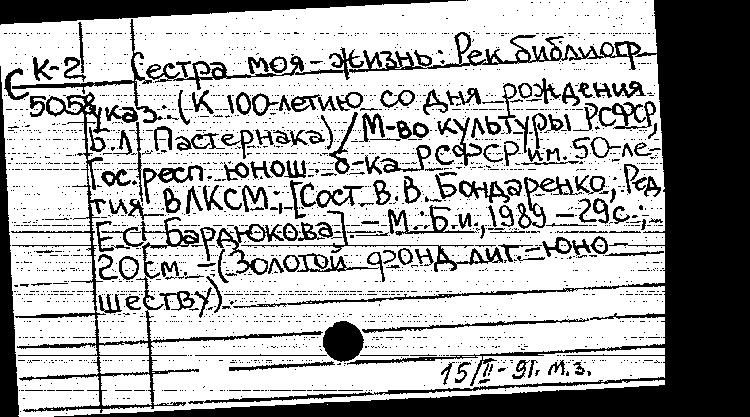 С К-2 Сестра моя-жизнь: Рек библиогр
5058 указ.: (К 100-летию со дня рождения
Б.Л. Пастернака)/М-во культуры РСФСР,
Гос. респ. юнош. б-ка РСФСР им. 50-ле-
тия ВЛКСМ; [Сост. В.В. Бондаренко; Ред.
Е.С. Бардюкова]. – М.: Б.и., 1989 – 29с.;
20см. – (Золотой фонд лит. – юно-
шеству).
15/II - 91. м.з.